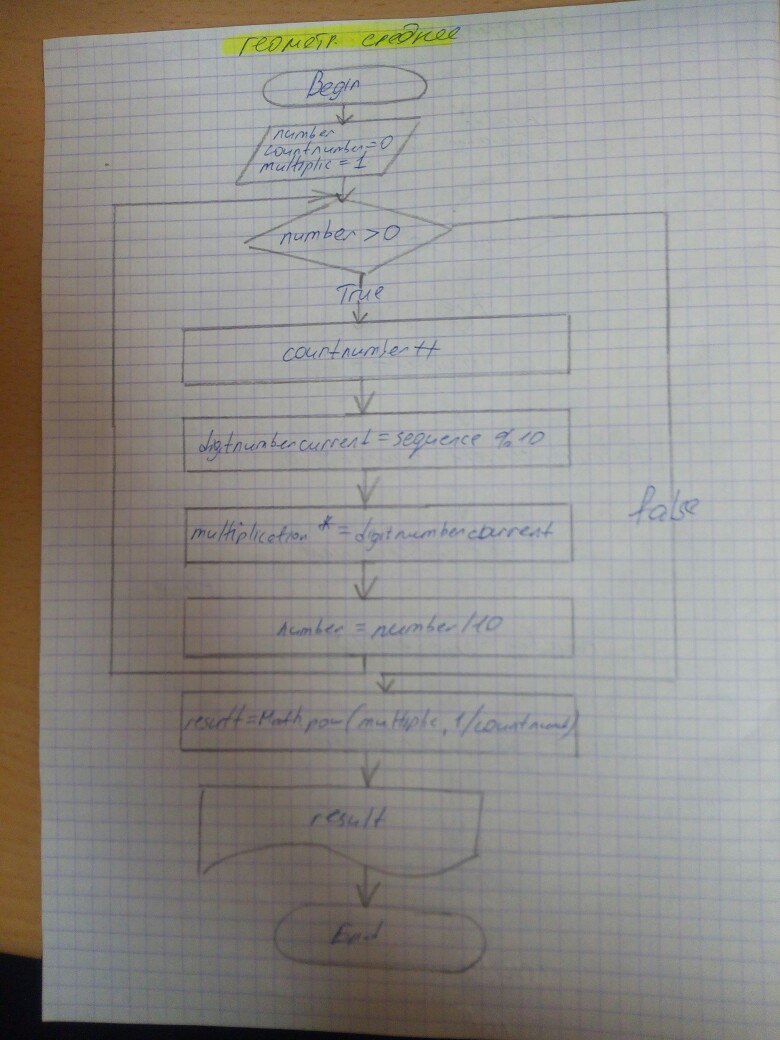 геометр. среднее
Begin
number
countnumber=0
multiplic = 1
number >0
True
countnumber++
digitnumbercurrent = sequence %10
false
multiplication *= digitnumbercurrent
number = number/10
result=Math.pow(multiplic, 1/countnumb)
result
End